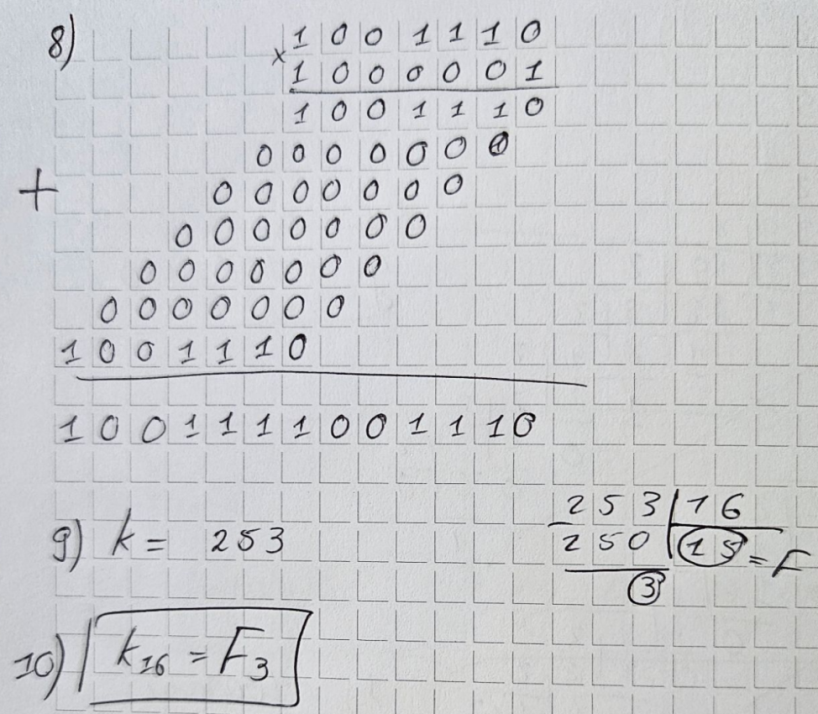 8) 1 0 0 1 1 1 0
× 1 0 0 0 0 0 1
1 0 0 1 1 1 0
0 0 0 0 0 0 0
+ 0 0 0 0 0 0 0
0 0 0 0 0 0 0
0 0 0 0 0 0 0
0 0 0 0 0 0 0
1 0 0 1 1 1 0
1 0 0 1 1 1 1 0 0 1 1 1 0
9) k = 253
253 | 16
250 | 15 = F
3
10) k₁₆ = F₃